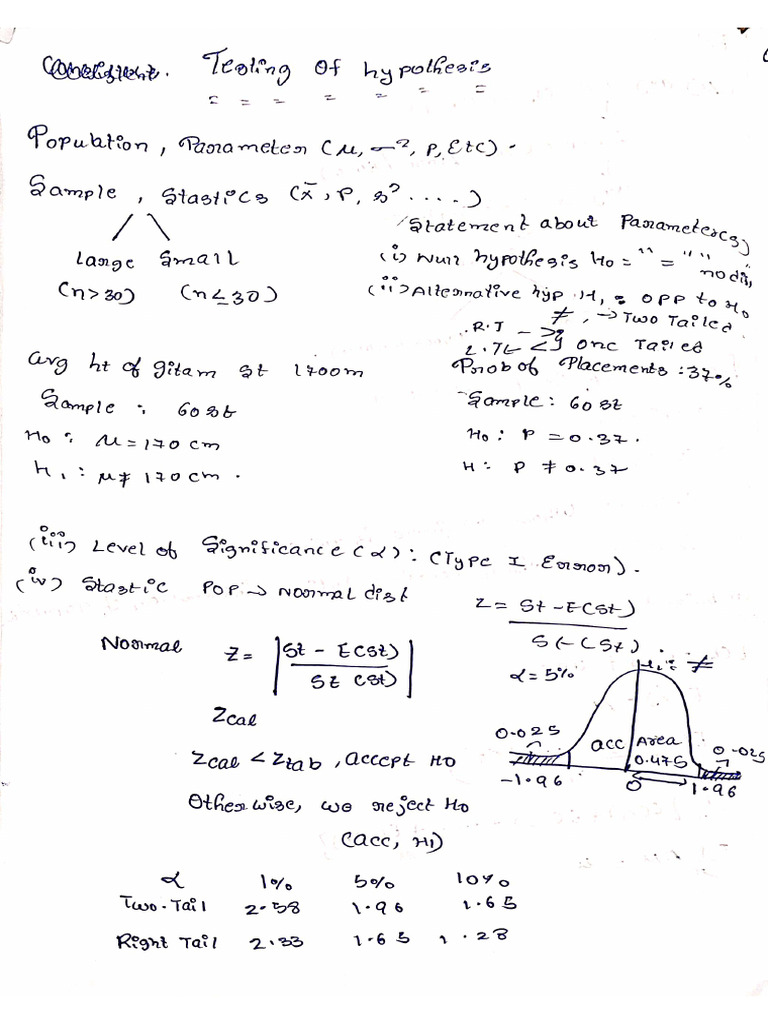 Testing of hypothesis
Population, Parameter (μ, σ², P, Etc).
Sample, Stastics (x̄, p, s² ....)
Large Small
(n>30) (n≤30)
Statement about Parameter(s)
(i) Null hypothesis H₀ = " = " " no dis
(ii) Alternative hyp H₁ = opp to H₀
≠, → Two Tailed
R.T - >
L.T < } one Tailed
avg ht of gitam st 1700m
Sample : 60 st
H₀ : μ = 170 cm
H₁ : μ ≠ 170 cm.
Prob of Placements : 37%
Sample : 60 st
H₀ : P = 0.37.
H : P ≠ 0.37
(iii) Level of Significance (α) : (Type I Error).
(iv) Stastic POP → Normal dist
Z = St - E(St) / S (St).
Normal Z = | St - E(St) / St (St) |
Zcal
Zcal < Ztab, accept H₀
Otherwise, we reject H₀
(acc, H₁)
α = 5%
H₁ : ≠
0.025
acc Area
0.475
0.025
-1.96 0 1.96
α 1% 5% 10%
Two-Tail 2.58 1.96 1.65
Right Tail 2.33 1.65 1.28